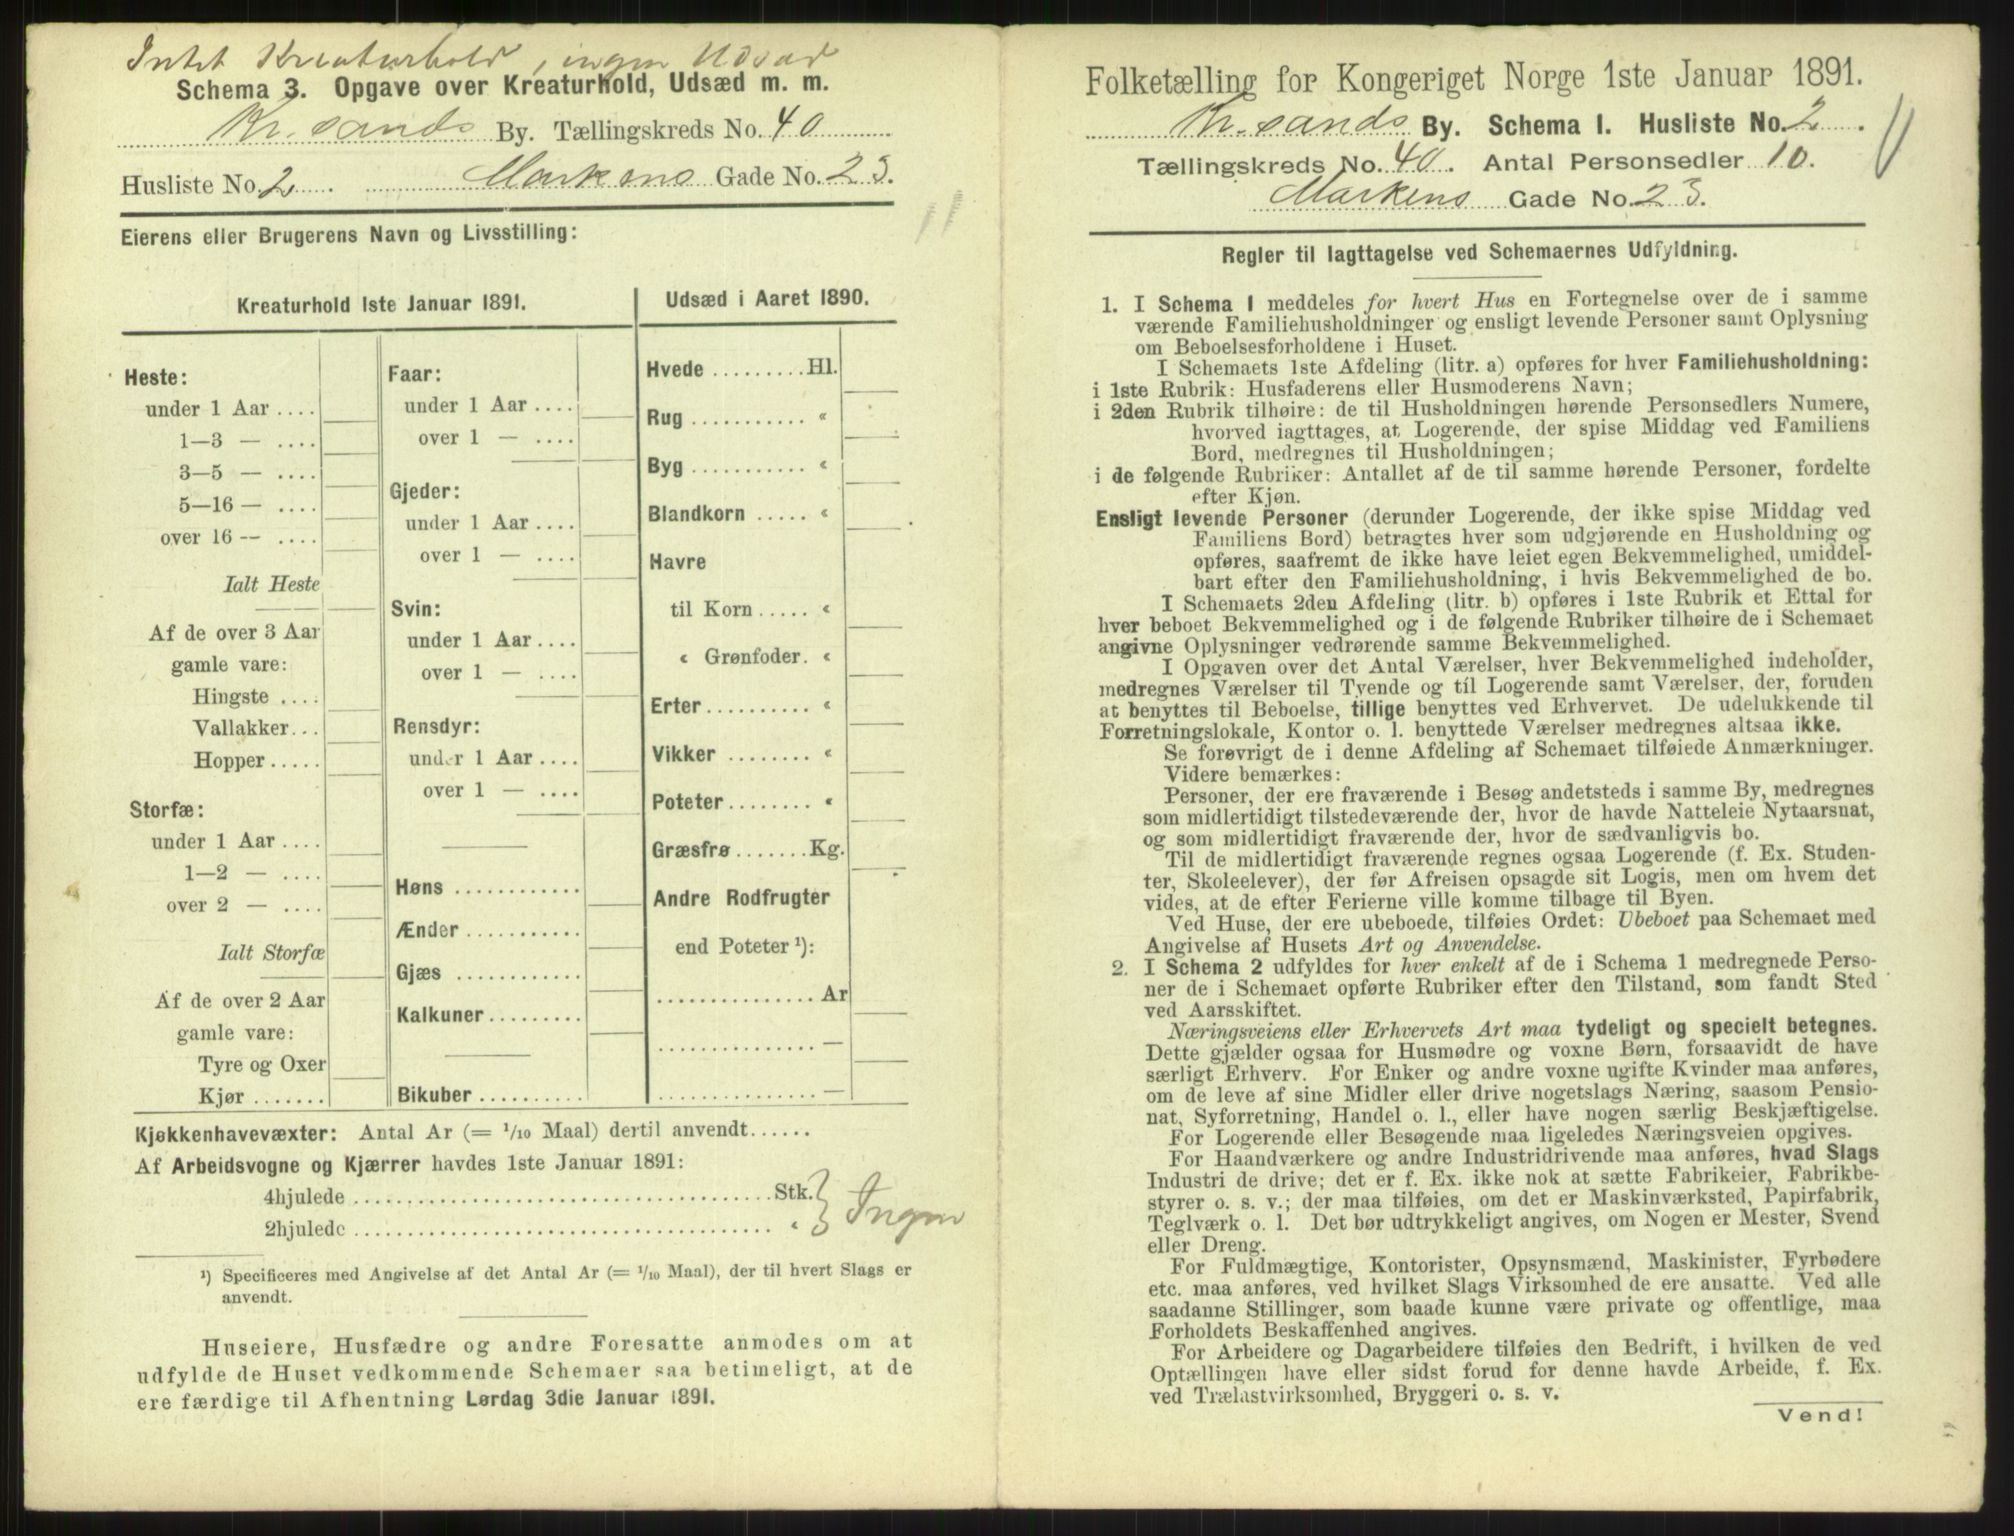 Intet Kreaturhold, ingen Udsæd
Schema 3. Opgave over Kreaturhold, Udsæd m. m.
Kr.sands By. Tællingskreds No. 40
Husliste No. 2 Markens Gade No. 23.
11
Eierens eller Brugerens Navn og Livsstilling:
Kreaturhold 1ste Januar 1891.
Heste:
under 1 Aar ....
1—3 — ....
3—5 — ....
5—16 — ....
over 16 — ....
Ialt Heste
Af de over 3 Aar
gamle vare:
Hingste ....
Vallakker...
Hopper.....
Storfæ:
under 1 Aar ....
1—2 — ....
over 2 — ....
Ialt Storfæ
Af de over 2 Aar
gamle vare:
Tyre og Oxer
Kjør .......
Faar:
under 1 Aar ....
over 1 — ....
Gjeder:
under 1 Aar ....
over 1 — ....
Svin:
under 1 Aar ....
over 1 — ....
Rensdyr:
under 1 Aar ....
over 1 — ....
Høns ............
Ænder ...........
Gjæs ............
Kalkuner.........
Bikuber ..........
Udsæd i Aaret 1890.
Hvede .........Hl.
Rug ........... «
Byg ........... «
Blandkorn ..... «
Havre
til Korn ..... «
« Grønfoder. «
Erter.......... «
Vikker ........ «
Poteter........ «
Græsfrø.......Kg.
Andre Rodfrugter
end Poteter ¹):
...............Ar
............... —
............... —
Kjøkkenhavevæxter: Antal Ar (= 1/10 Maal) dertil anvendt......
Af Arbeidsvogne og Kjærrer havdes 1ste Januar 1891:
4hjulede ........................................Stk.
2hjulede ........................................ «
} Ingen
¹) Specificeres med Angivelse af det Antal Ar (= 1/10 Maal), der til hvert Slags er
anvendt.
Huseiere, Husfædre og andre Foresatte anmodes om at
udfylde de Huset vedkommende Schemaer saa betimeligt, at de
ere færdige til Afhentning Lørdag 3die Januar 1891.
Folketælling for Kongeriget Norge 1ste Januar 1891.
Kr.sands By. Schema I. Husliste No. 2.
Tællingskreds No. 40. Antal Personsedler 10.
Markens Gade No. 23.
Regler til Iagttagelse ved Schemaernes Udfyldning.
1. I Schema 1 meddeles for hvert Hus en Fortegnelse over de i samme
værende Familiehusholdninger og ensligt levende Personer samt Oplysning
om Beboelsesforholdene i Huset.
I Schemaets 1ste Afdeling (litr. a) opføres for hver Familiehusholdning:
i 1ste Rubrik: Husfaderens eller Husmoderens Navn;
i 2den Rubrik tilhøire: de til Husholdningen hørende Personsedlers Numere,
hvorved iagttages, at Logerende, der spise Middag ved Familiens
Bord, medregnes til Husholdningen;
i de følgende Rubriker: Antallet af de til samme hørende Personer, fordelte
efter Kjøn.
Ensligt levende Personer (derunder Logerende, der ikke spise Middag ved
Familiens Bord) betragtes hver som udgjørende en Husholdning og
opføres, saafremt de ikke have leiet egen Bekvemmelighed, umiddel-
bart efter den Familiehusholdning, i hvis Bekvemmelighed de bo.
I Schemaets 2den Afdeling (litr. b) opføres i 1ste Rubrik et Ettal for
hver beboet Bekvemmelighed og i de følgende Rubriker tilhøire de i Schemaet
angivne Oplysninger vedrørende samme Bekvemmelighed.
I Opgaven over det Antal Værelser, hver Bekvemmelighed indeholder,
medregnes Værelser til Tyende og til Logerende samt Værelser, der, foruden
at benyttes til Beboelse, tillige benyttes ved Erhvervet. De udelukkende til
Forretningslokale, Kontor o. l. benyttede Værelser medregnes altsaa ikke.
Se forøvrigt de i denne Afdeling af Schemaet tilføiede Anmærkninger.
Videre bemærkes:
Personer, der ere fraværende i Besøg andetsteds i samme By, medregnes
som midlertidigt tilstedeværende der, hvor de havde Natteleie Nytaarsnat,
og som midlertidigt fraværende der, hvor de sædvanligvis bo.
Til de midlertidigt fraværende regnes ogsaa Logerende (f. Ex. Studen-
ter, Skoleelever), der før Afreisen opsagde sit Logis, men om hvem det
vides, at de efter Ferierne ville komme tilbage til Byen.
Ved Huse, der ere ubeboede, tilføies Ordet: Ubeboet paa Schemaet med
Angivelse af Husets Art og Anvendelse.
2. I Schema 2 udfyldes for hver enkelt af de i Schema 1 medregnede Perso-
ner de i Schemaet opførte Rubriker efter den Tilstand, som fandt Sted
ved Aarsskiftet.
Næringsveiens eller Erhvervets Art maa tydeligt og specielt betegnes.
Dette gjælder ogsaa for Husmødre og voxne Børn, forsaavidt de have
særligt Erhverv. For Enker og andre voxne ugifte Kvinder maa anføres,
om de leve af sine Midler eller drive nogetslags Næring, saasom Pensio-
nat, Syforretning, Handel o. l., eller have nogen særlig Beskjæftigelse.
For Logerende eller Besøgende maa ligeledes Næringsveien opgives.
For Haandværkere og andre Industridrivende maa anføres, hvad Slags
Industri de drive; det er f. Ex. ikke nok at sætte Fabrikeier, Fabrikbe-
styrer o. s. v.; der maa tilføies, om det er Maskinværksted, Papirfabrik,
Teglværk o. l. Det bør udtrykkeligt angives, om Nogen er Mester, Svend
eller Dreng.
For Fuldmægtige, Kontorister, Opsynsmænd, Maskinister, Fyrbødere
etc. maa anføres, ved hvilket Slags Virksomhed de ere ansatte. Ved alle
saadanne Stillinger, som baade kunne være private og offentlige, maa
Forholdets Beskaffenhed angives.
For Arbeidere og Dagarbeidere tilføies den Bedrift, i hvilken de ved
Optællingen have eller sidst forud for denne havde Arbeide, f. Ex.
ved Trælastvirksomhed, Bryggeri o. s. v.
Vend!